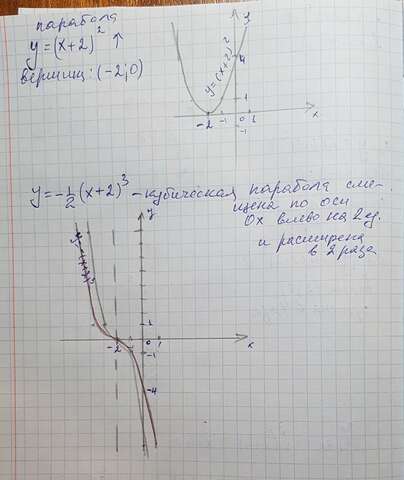 парабола
y=(x+2)² ↑
вершин: (-2;0)
y
y=(x+2)²
4
-2 -1 0 1
-1
x
y=-1/2(x+2)³ - кубическая парабола сме-
щена по оси
Ox влево на 2 ед.
и расширена
в 2 раза
y
1
-2 -1 0 1
-1
x
-4